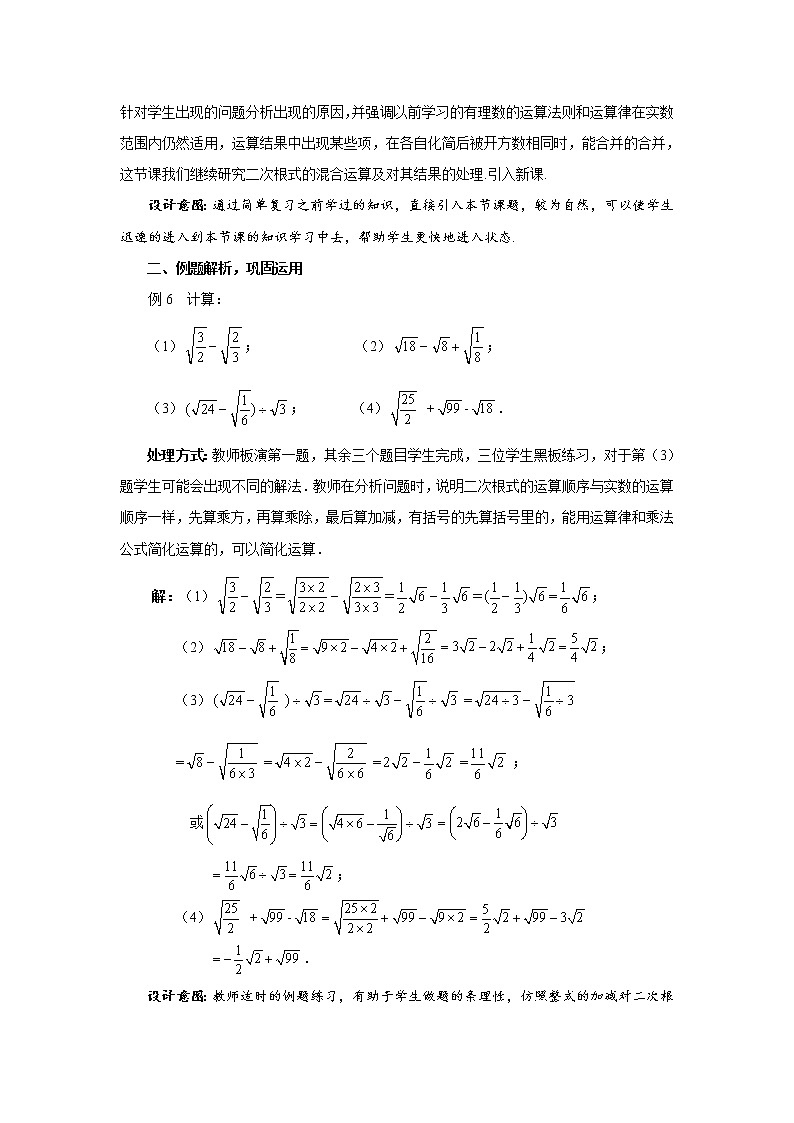 针对学生出现的问题分析出现的原因,并强调以前学习的有理数的运算法则和运算律在实数
范围内仍然适用，运算结果中出现某些项，在各自化简后被开方数相同时，能合并的合并，
这节课我们继续研究二次根式的混合运算及对其结果的处理.引入新课.
设计意图：通过简单复习之前学过的知识，直接引入本节课题，较为自然，可以使学生
迅速的进入到本节课的知识学习中去，帮助学生更快地进入状态.
二、例题解析，巩固运用
例 6 计算：
（1）√(3/2) − √(2/3)； （2）√18 − √8 + √(1/8)；
（3）(√24 − √(1/6)) ÷ √3； （4）√(25/2) + √99 - √18．
处理方式：教师板演第一题，其余三个题目学生完成，三位学生黑板练习，对于第（3）
题学生可能会出现不同的解法．教师在分析问题时，说明二次根式的运算顺序与实数的运算
顺序一样，先算乘方，再算乘除，最后算加减，有括号的先算括号里的，能用运算律和乘法
公式简化运算的，可以简化运算．
解：（1）√(3/2) − √(2/3) = √((3×2)/(2×2)) − √((2×3)/(3×3)) = (1/2)√6 − (1/3)√6 = (1/2 − 1/3)√6 = (1/6)√6；
（2）√18 − √8 + √(1/8) = √(9×2) − √(4×2) + √(2/16) = 3√2 − 2√2 + (1/4)√2 = (5/4)√2；
（3）(√24 − √(1/6)) ÷ √3 = √24 ÷ √3 − √(1/6) ÷ √3 = √(24÷3) − √(1/6 ÷ 3)
= √8 − √(1/(6×3)) = √(4×2) − √(2/(6×6)) = 2√2 − (1/6)√2 = (11/6)√2 ；
或(√24 − √(1/6)) ÷ √3 = (√(4×6) − 1/√6) ÷ √3 = (2√6 − (1/6)√6) ÷ √3
= (11/6)√6 ÷ √3 = (11/6)√2；
（4）√(25/2) + √99 - √18 = √((25×2)/(2×2)) + √99 − √(9×2) = (5/2)√2 + √99 − 3√2
= −(1/2)√2 + √99．
设计意图：教师适时的例题练习，有助于学生做题的条理性，仿照整式的加减对二次根